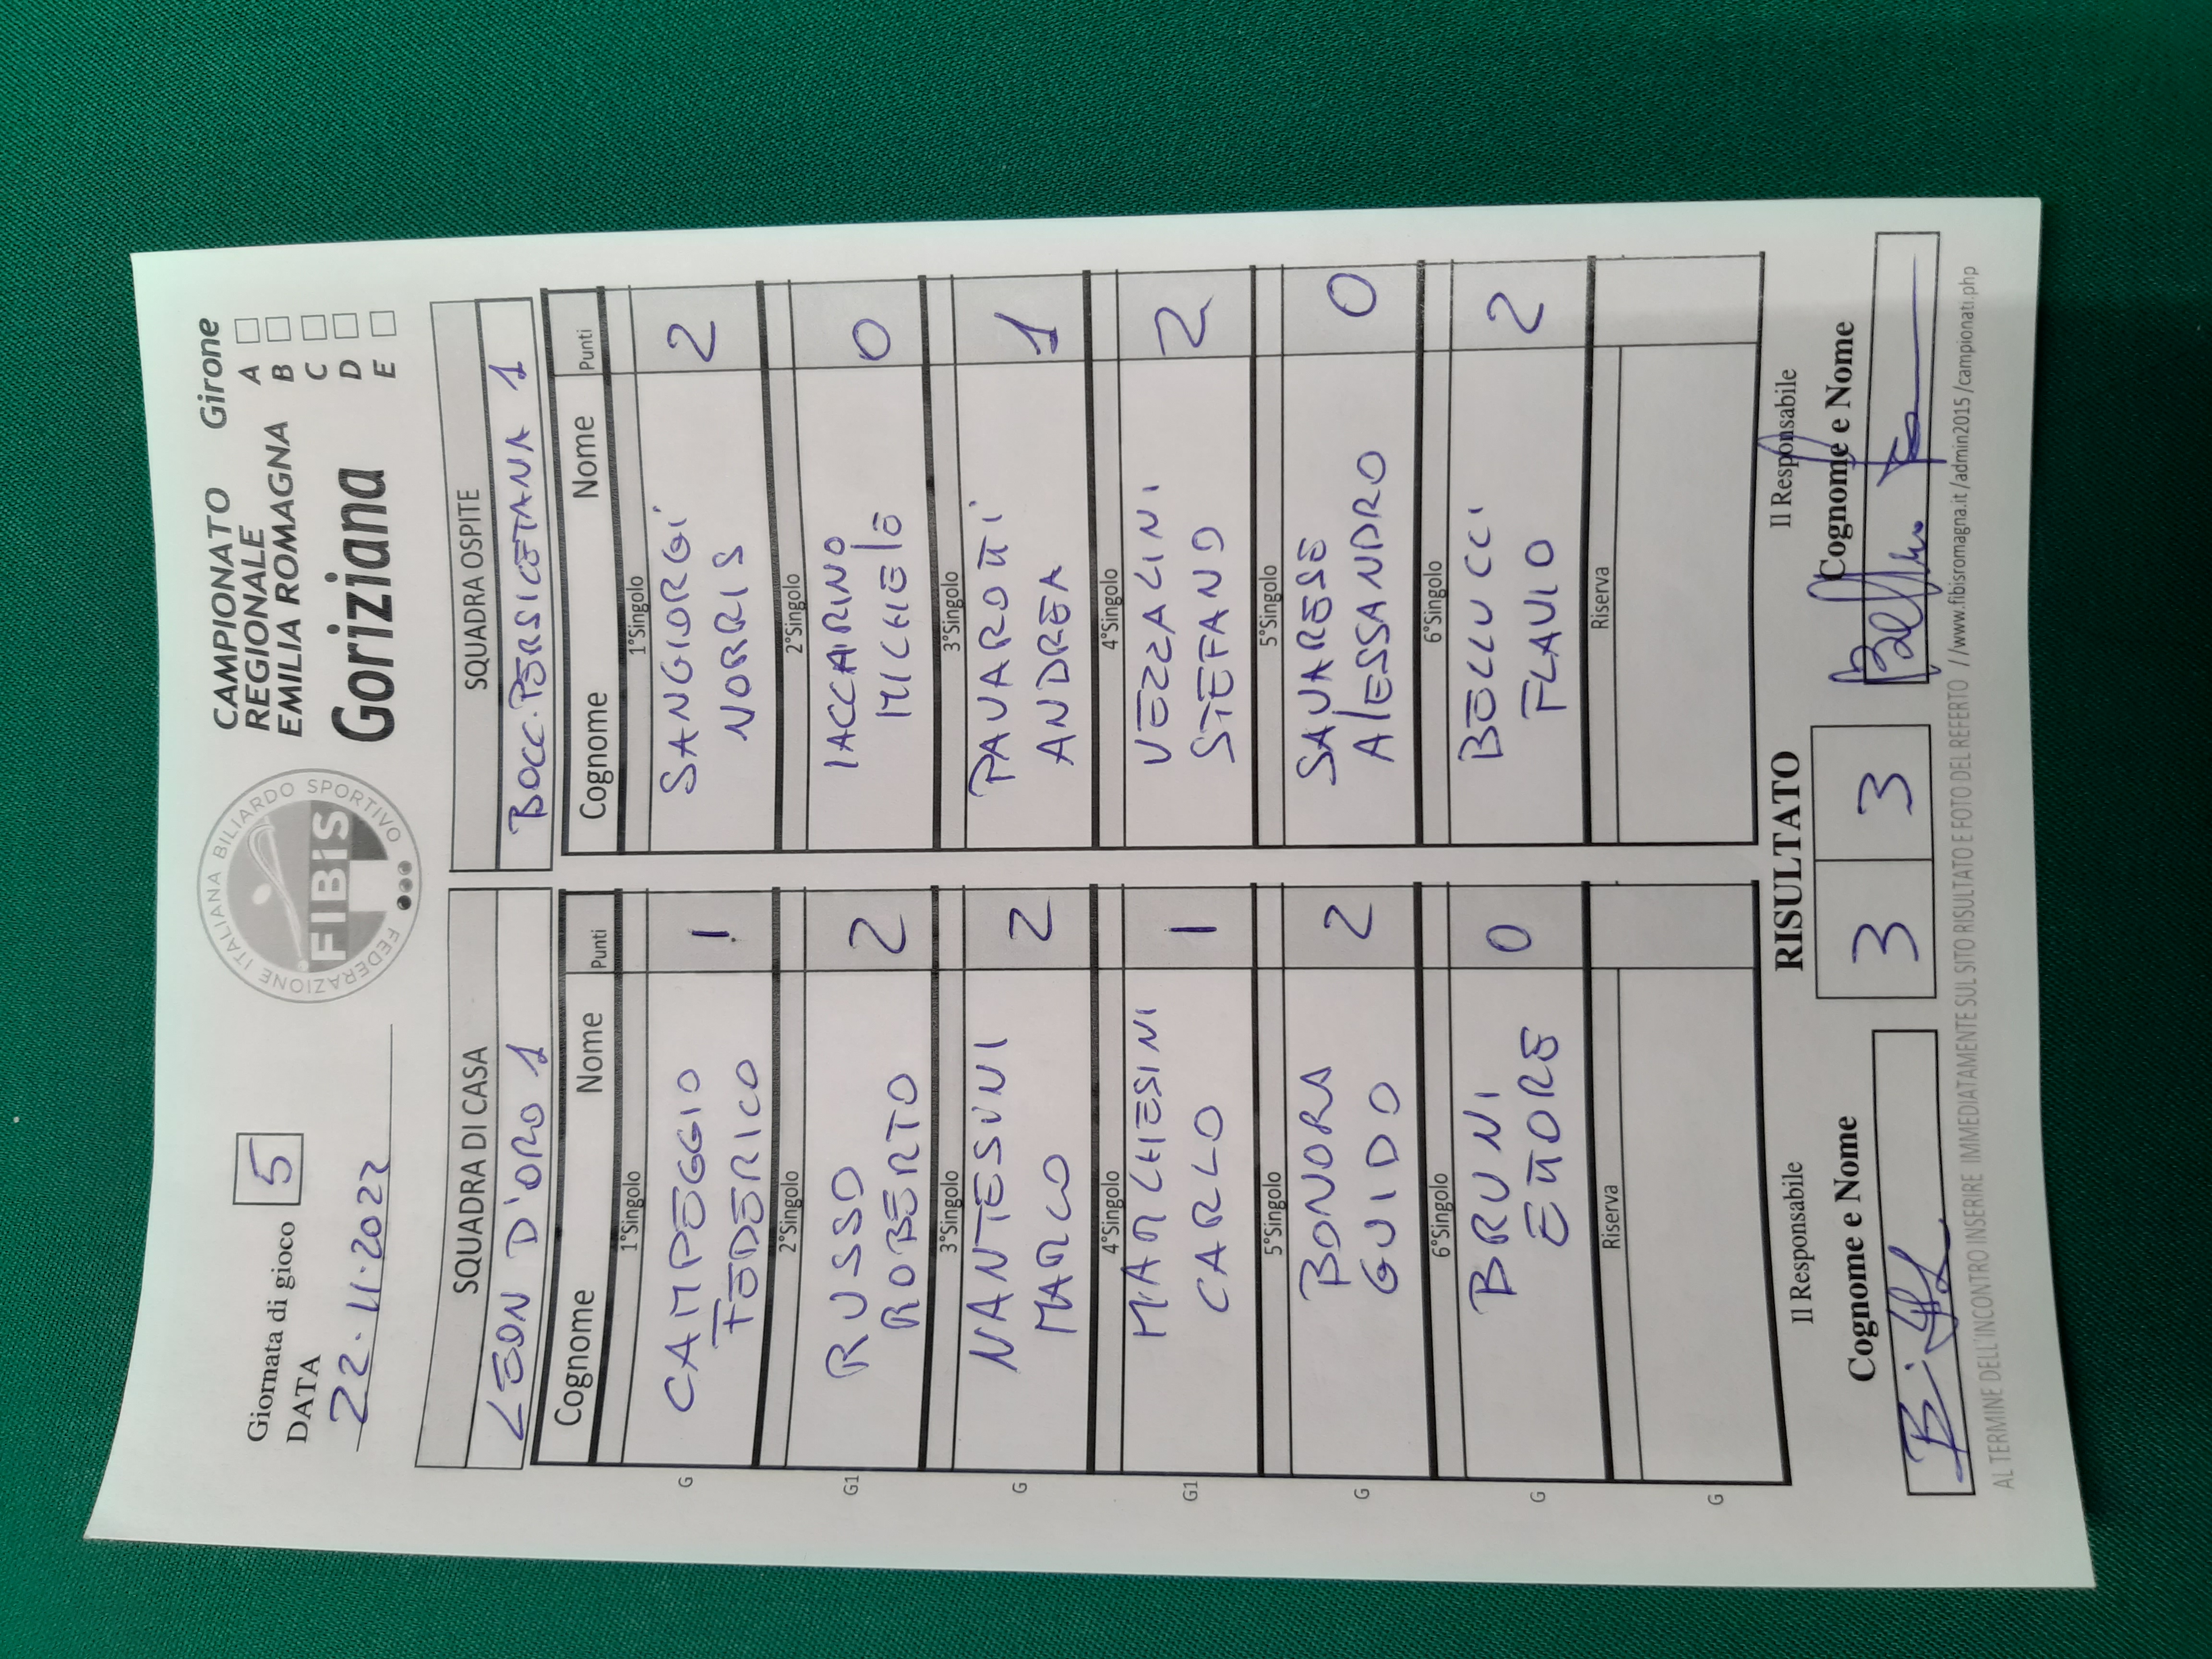 Giornata di gioco 5
DATA
22.11.2022
FEDERAZIONE ITALIANA BILIARDO SPORTIVO
FIBIS
CAMPIONATO
REGIONALE
EMILIA ROMAGNA
Goriziana
Girone
A
B
C
D
E
SQUADRA DI CASA
LEON D'ORO 1
Cognome Nome Punti
1°Singolo
G CAMPEGGIO 1
FEDERICO
2°Singolo
G1 RUSSO 2
ROBERTO
3°Singolo
G NANTESINI 2
MARCO
4°Singolo
G1 MARCHESINI 1
CARLO
5°Singolo
G BONORA 2
GUIDO
6°Singolo
G BRUNI 0
ETTORE
Riserva
G
SQUADRA OSPITE
BOCC. PERSICETANA 1
Cognome Nome Punti
1°Singolo
SANGIORGI 2
NORRIS
2°Singolo
IACCARINO 0
MICHELE
3°Singolo
PAVAROTTI 1
ANDREA
4°Singolo
VEZZALINI 2
STEFANO
5°Singolo
SAVARESE 0
ALESSANDRO
6°Singolo
BELLUCCI 2
FLAVIO
Riserva
Il Responsabile
Cognome e Nome
RISULTATO
3 3
Il Responsabile
Cognome e Nome
AL TERMINE DELL'INCONTRO INSERIRE IMMEDIATAMENTE SUL SITO RISULTATO E FOTO DEL REFERTO //www.fibisromagna.it/admin2015/campionati.php